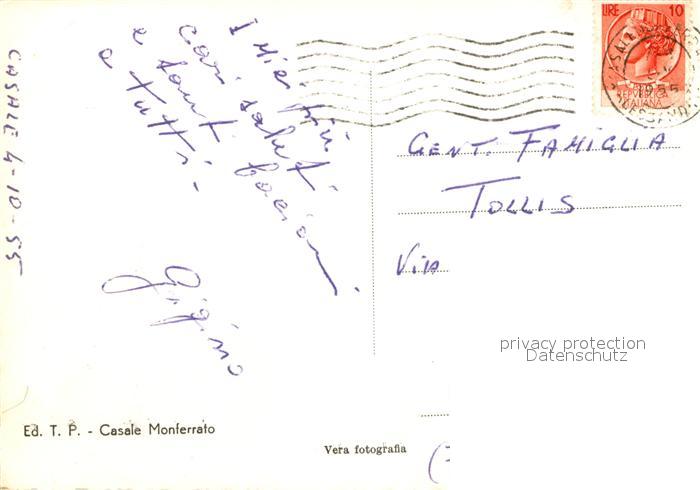 CASALE 4-10-55
I Miei più
cari saluti
e tanti bacioni
a tutti -
Gigino
LIRE 10
1955
REPVBBLICA
ITALIANA
GENT. FAMIGLIA
TOLLIS
VIA
privacy protection
Datenschutz
Ed. T. P. - Casale Monferrato
Vera fotografia